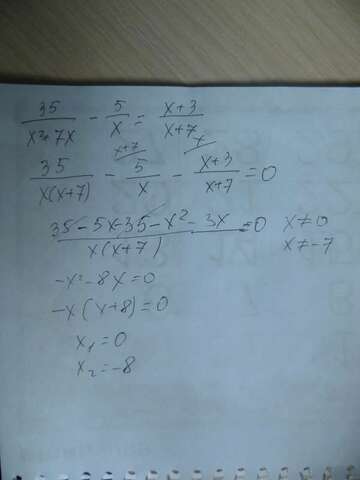 35/(x²+7x) - 5/x = (x+3)/(x+7)
35/(x(x+7)) - 5/x ^(x+7) - (x+3)/(x+7) ^x = 0
(35-5x-35-x²-3x)/(x(x+7)) = 0 x≠0
x≠-7
-x²-8x=0
-x(x+8)=0
x₁=0
x₂=-8